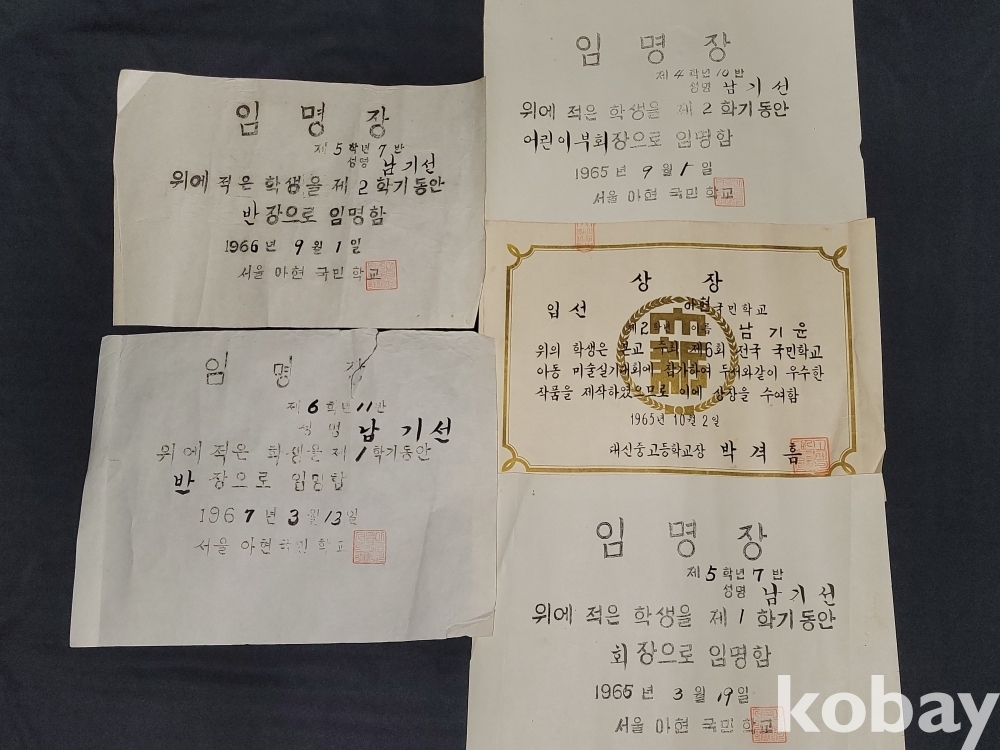 임명장
제5학년 7반
성명 남기선
위에 적은 학생을 제2학기동안
반장으로 임명함
1966년 9월 1일
서울 아현 국민학교
임명장
제4학년 10반
성명 남기선
위에 적은 학생을 제2학기동안
어린이부회장으로 임명함
1965년 9월 1일
서울 아현 국민학교
상장
입선 아현국민학교
제2학년 이름 남기윤
위의 학생은 본교 주최 제6회 전국 국민학교
아동 미술실기대회에 참가하여 두서와같이 우수한
작품을 제작하였으므로 이에 상장을 수여함
1965년 10월 2일
대신중고등학교장 박격흠
임명장
제6학년 11반
성명 남기선
위에 적은 학생을 제1학기동안
반장으로 임명함
1967년 3월 13일
서울 아현 국민학교
임명장
제5학년 7반
성명 남기선
위에 적은 학생을 제1학기동안
회장으로 임명함
1965년 3월 19일
서울 아현 국민학교
kobay